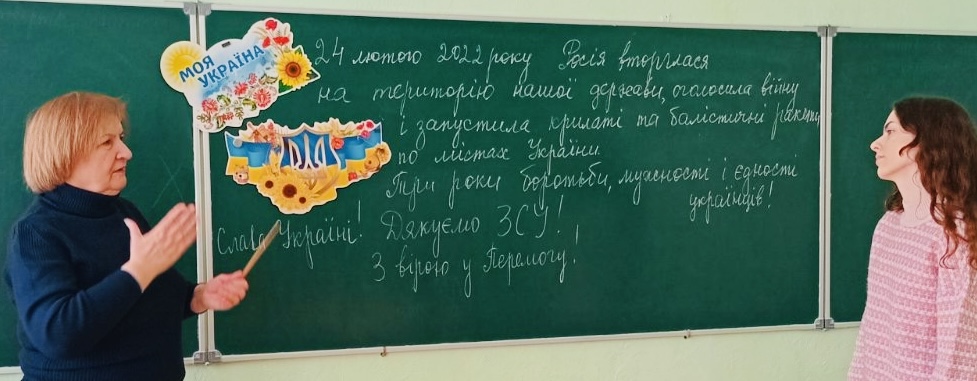 МОЯ
УКРАЇНА
24 лютого 2022 року Росія вторглася
на територію нашої держави, оголосила війну
і запустила крилаті та балістичні ракети
по містах України.
Три роки боротьби, мужності і єдності
українців!
Слава Україні! Дякуємо ЗСУ!
З вірою у Перемогу!